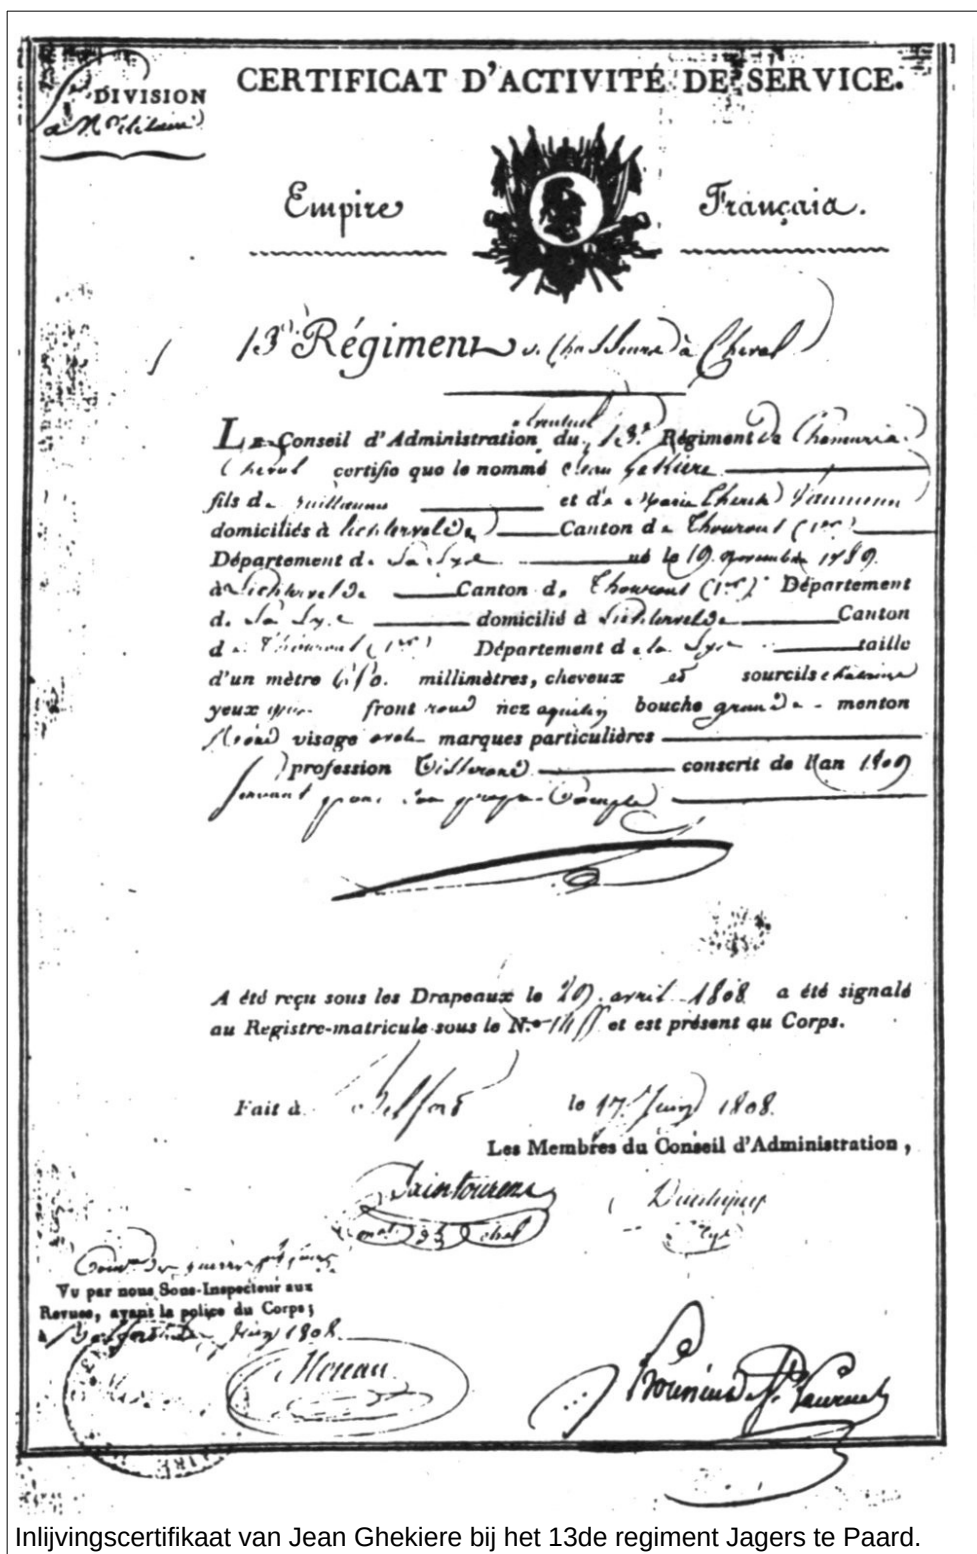 CERTIFICAT D'ACTIVITÉ DE SERVICE.
DIVISION
Militaire
Empire Français.
13e Régiment de Chasseurs à Cheval
Le Conseil d'Administration du 13e Régiment de Chasseurs à
Cheval certifie que le nommé Jean Gekiere
fils de Guillaume et de Marie
domiciliés à Lichtervelde Canton de Thourout (1er)
Département de La Lys né le 19 novembre 1789.
à Lichtervelde Canton de Thourout (1er) Département
de La Lys domicilié à Lichtervelde Canton
de Thourout (1er) Département de la Lys taille
d'un mètre millimètres, cheveux et sourcils
yeux gris front rond nez aquilin bouche grande menton
rond visage oval marques particulières
profession Tisserand conscrit de l'an 1809
servant pour son propre Compte
A été reçu sous les Drapeaux le avril 1808 a été signalé
au Registre-matricule sous le N.o et est présent au Corps.
Fait à Belford le 17 Juin 1808.
Les Membres du Conseil d'Administration,
Vu par nous Sous-Inspecteur aux
Revues, ayant la police du Corps;
à Belford le Juin 1808.
Inlijvingscertifikaat van Jean Ghekiere bij het 13de regiment Jagers te Paard.